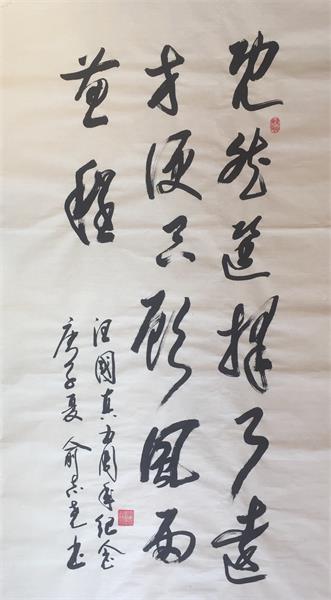 既然選擇了遠
方便只顧風雨
兼程
汪國真五周年紀念
庚子夏 俞